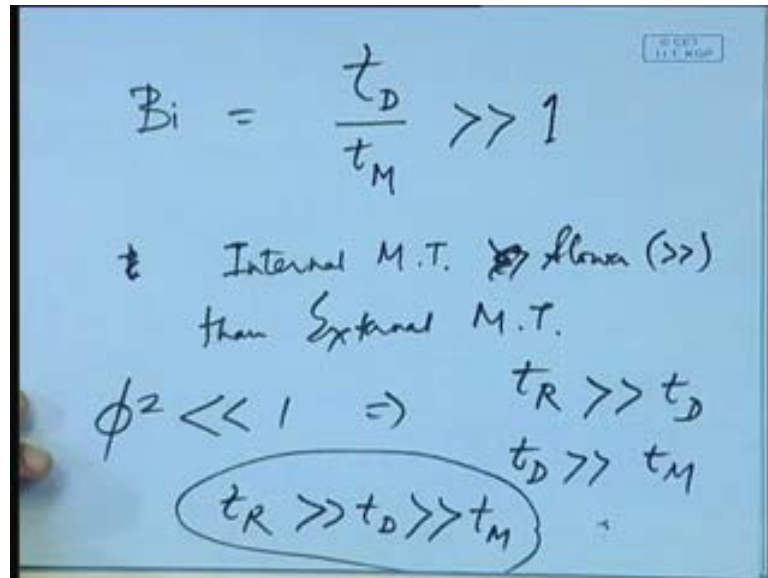 © CET
I.I.T. KGP
Bi = t_D / t_M >> 1
Internal M.T. slower (>>)
than External M.T.
φ² << 1 ⇒ t_R >> t_D
t_D >> t_M
t_R >> t_D >> t_M